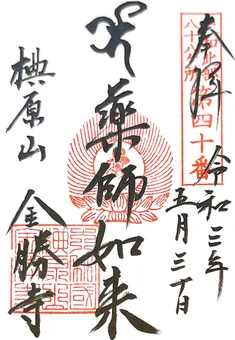 奉拝
第四十番
八十八ヶ所
令和三年
五月三十日
薬師如来
椣原山
金勝寺